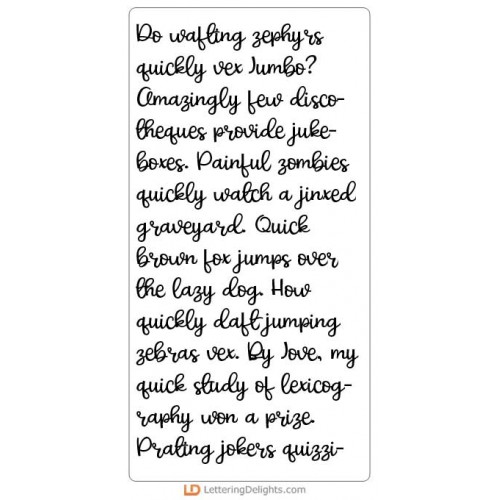 Do wafting zephyrs
quickly vex Jumbo?
Amazingly few disco-
theques provide juke-
boxes. Painful zombies
quickly watch a jinxed
graveyard. Quick
brown fox jumps over
the lazy dog. How
quickly daft jumping
zebras vex. By Jove, my
quick study of lexicog-
raphy won a prize.
Prating jokers quizzi-
LD LetteringDelights.com